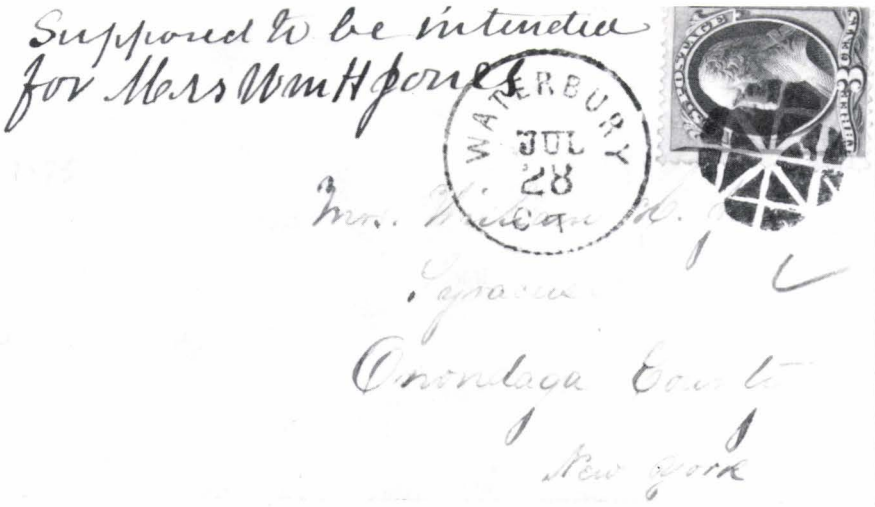 Supposed to be intended
for Mrs Wm H Jones
WATERBURY
JUL
28
CT
Mrs. William H. J
Syracuse
Onondaga County
New York